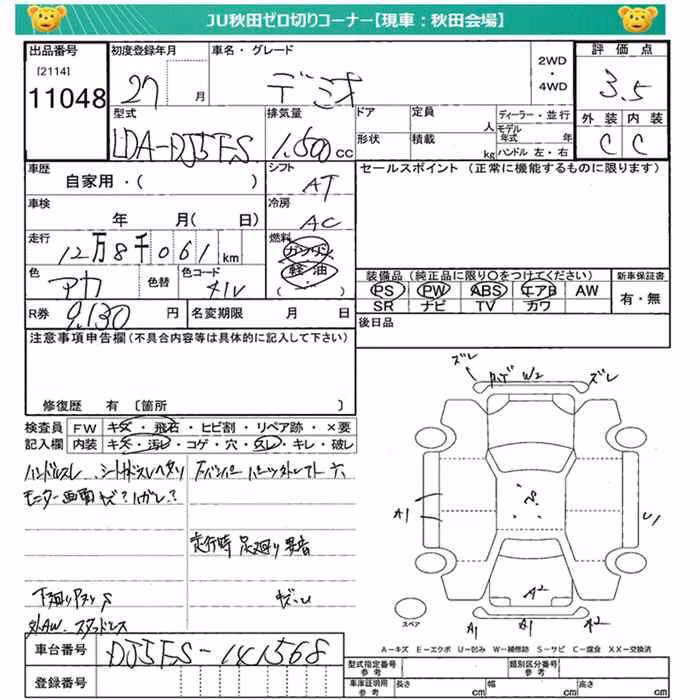 JU秋田ゼロ切りコーナー【現車：秋田会場】
出品番号 初度登録年月 車名・グレード 2WD・4WD 評価点
[2114]
11048 27 月 デミオ 3.5
型式 排気量 ドア 定員 人 ディーラー・並行 外装 内装
LDA-DJ5FS 1.500 cc 形状 積載 kg モデル年式 年 ハンドル 左・右 C C
車歴 シフト セールスポイント（正常に機能するものに限ります）
自家用・（ ） AT
車検 冷房
年 月（ 日） AC
走行 燃料
12万8千061km ガソリン
軽・油
色 色替 色コード 装備品（純正品に限り○をつけてください） 新車保証書
アカ 41V PS PW ABS エアB AW 有・無
SR ナビ TV カワ
R券 9.130 円 名変期限 月 日 後日品
注意事項申告欄（不具合内容等は具体的に記入して下さい）
修復歴 有〔箇所 〕
検査員 FW キズ・飛石・ヒビ割・リペア跡・×要
記入欄 内装 キズ・汚レ・コゲ・穴・スレ・キレ・破レ
ハンドルスレ、シート
モニター画面キズ？ハガレ？
走行時 足廻り異音
下廻り
外AW. スタッドレス
ズレ W2 ズレ
A1 U1
A2
A1 B1 A2
スペア
A－キズ E－エクボ U－凹み W－補修跡 S－サビ C－腐食 XX－交換済
車台番号 DJ5FS-141568
登録番号
型式指定番号 参考 類別区分番号 参考
車庫証明用 参考 長さ cm 幅 cm 高さ cm